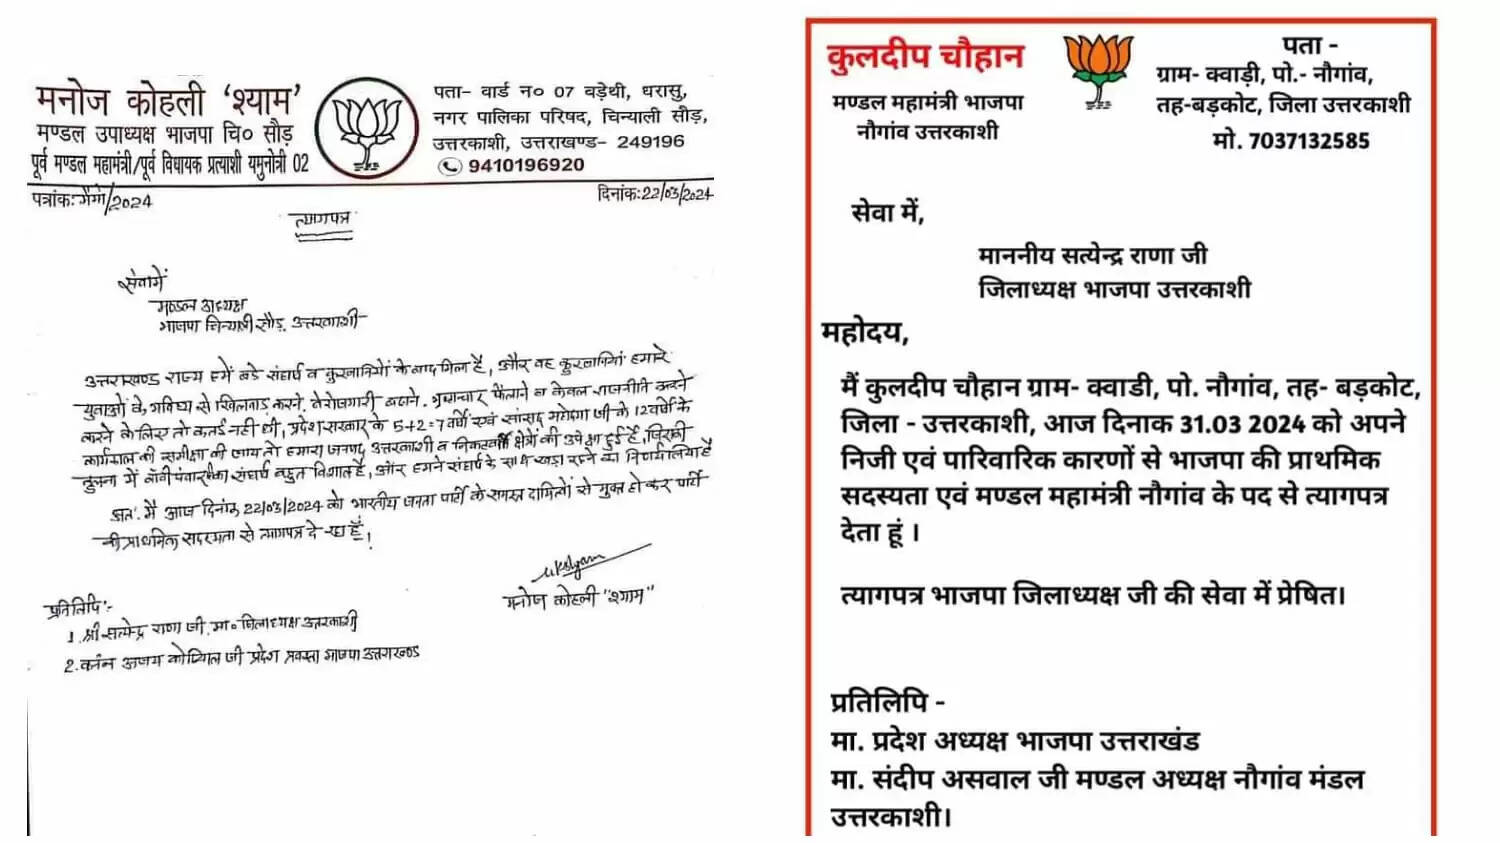 मनोज कोहली ‘श्याम’
मण्डल उपाध्यक्ष भाजपा चि० सौड़
पूर्व मण्डल महामंत्री/पूर्व विधायक प्रत्याशी यमुनोत्री 02
पता- वार्ड न० 07 बड़ेथी, धरासु,
नगर पालिका परिषद, चिन्याली सौड़,
उत्तरकाशी, उत्तराखण्ड- 249196
9410196920
पत्रांक: /2024
दिनांक:22/03/2024
त्यागपत्र
सेवामें
मण्डल अध्यक्ष
भाजपा चिन्याली सौड़, उत्तरकाशी
उत्तराखण्ड राज्य हमें बडे संघर्ष व कुरबानियों के बाद मिला है, और वह कुरबानियां हमारे
युवाओं के भविष्य से खिलवाड़ करने, बेरोजगारी बढाने, भ्रष्टाचार फैलाने व केवल राजनीति
करने के लिए तो कतई नहीं थी, प्रदेश सरकार के 5+2=7 वर्षों एवं सांसद महोदया जी के 12 वर्षों के
कार्यकाल की समीक्षा की जाय तो हमारा जनपद उत्तरकाशी व क्षेत्रों की उपेक्षा हुई है, जिसकी
तुलना में बॉबी पंवार का संघर्ष बहुत विशाल है, और हमने संघर्ष के साथ खड़ा रहने का निर्णय लिया है
अतः मैं आज दिनांक 22/03/2024 को भारतीय जनता पार्टी के समस्त दायित्वों से मुक्त होकर पार्टी
की प्राथमिक सदस्यता से त्यागपत्र दे रहा हूँ!
मनोज कोहली "श्याम"
प्रतिलिपि:-
1. श्री सत्येन्द्र राणा जी, मा० जिलाध्यक्ष उत्तरकाशी
2. अजय कोठियाल जी प्रदेश प्रवक्ता भाजपा उत्तराखण्ड
कुलदीप चौहान
मण्डल महामंत्री भाजपा
नौगांव उत्तरकाशी
पता -
ग्राम- क्वाड़ी, पो.- नौगांव,
तह-बड़कोट, जिला उत्तरकाशी
मो. 7037132585
सेवा में,
माननीय सत्येन्द्र राणा जी
जिलाध्यक्ष भाजपा उत्तरकाशी
महोदय,
मैं कुलदीप चौहान ग्राम- क्वाडी, पो. नौगांव, तह- बड़कोट,
जिला - उत्तरकाशी, आज दिनांक 31.03 2024 को अपने
निजी एवं पारिवारिक कारणों से भाजपा की प्राथमिक
सदस्यता एवं मण्डल महामंत्री नौगांव के पद से त्यागपत्र
देता हूं ।
त्यागपत्र भाजपा जिलाध्यक्ष जी की सेवा में प्रेषित।
प्रतिलिपि -
मा. प्रदेश अध्यक्ष भाजपा उत्तराखंड
मा. संदीप असवाल जी मण्डल अध्यक्ष नौगांव मंडल
उत्तरकाशी।